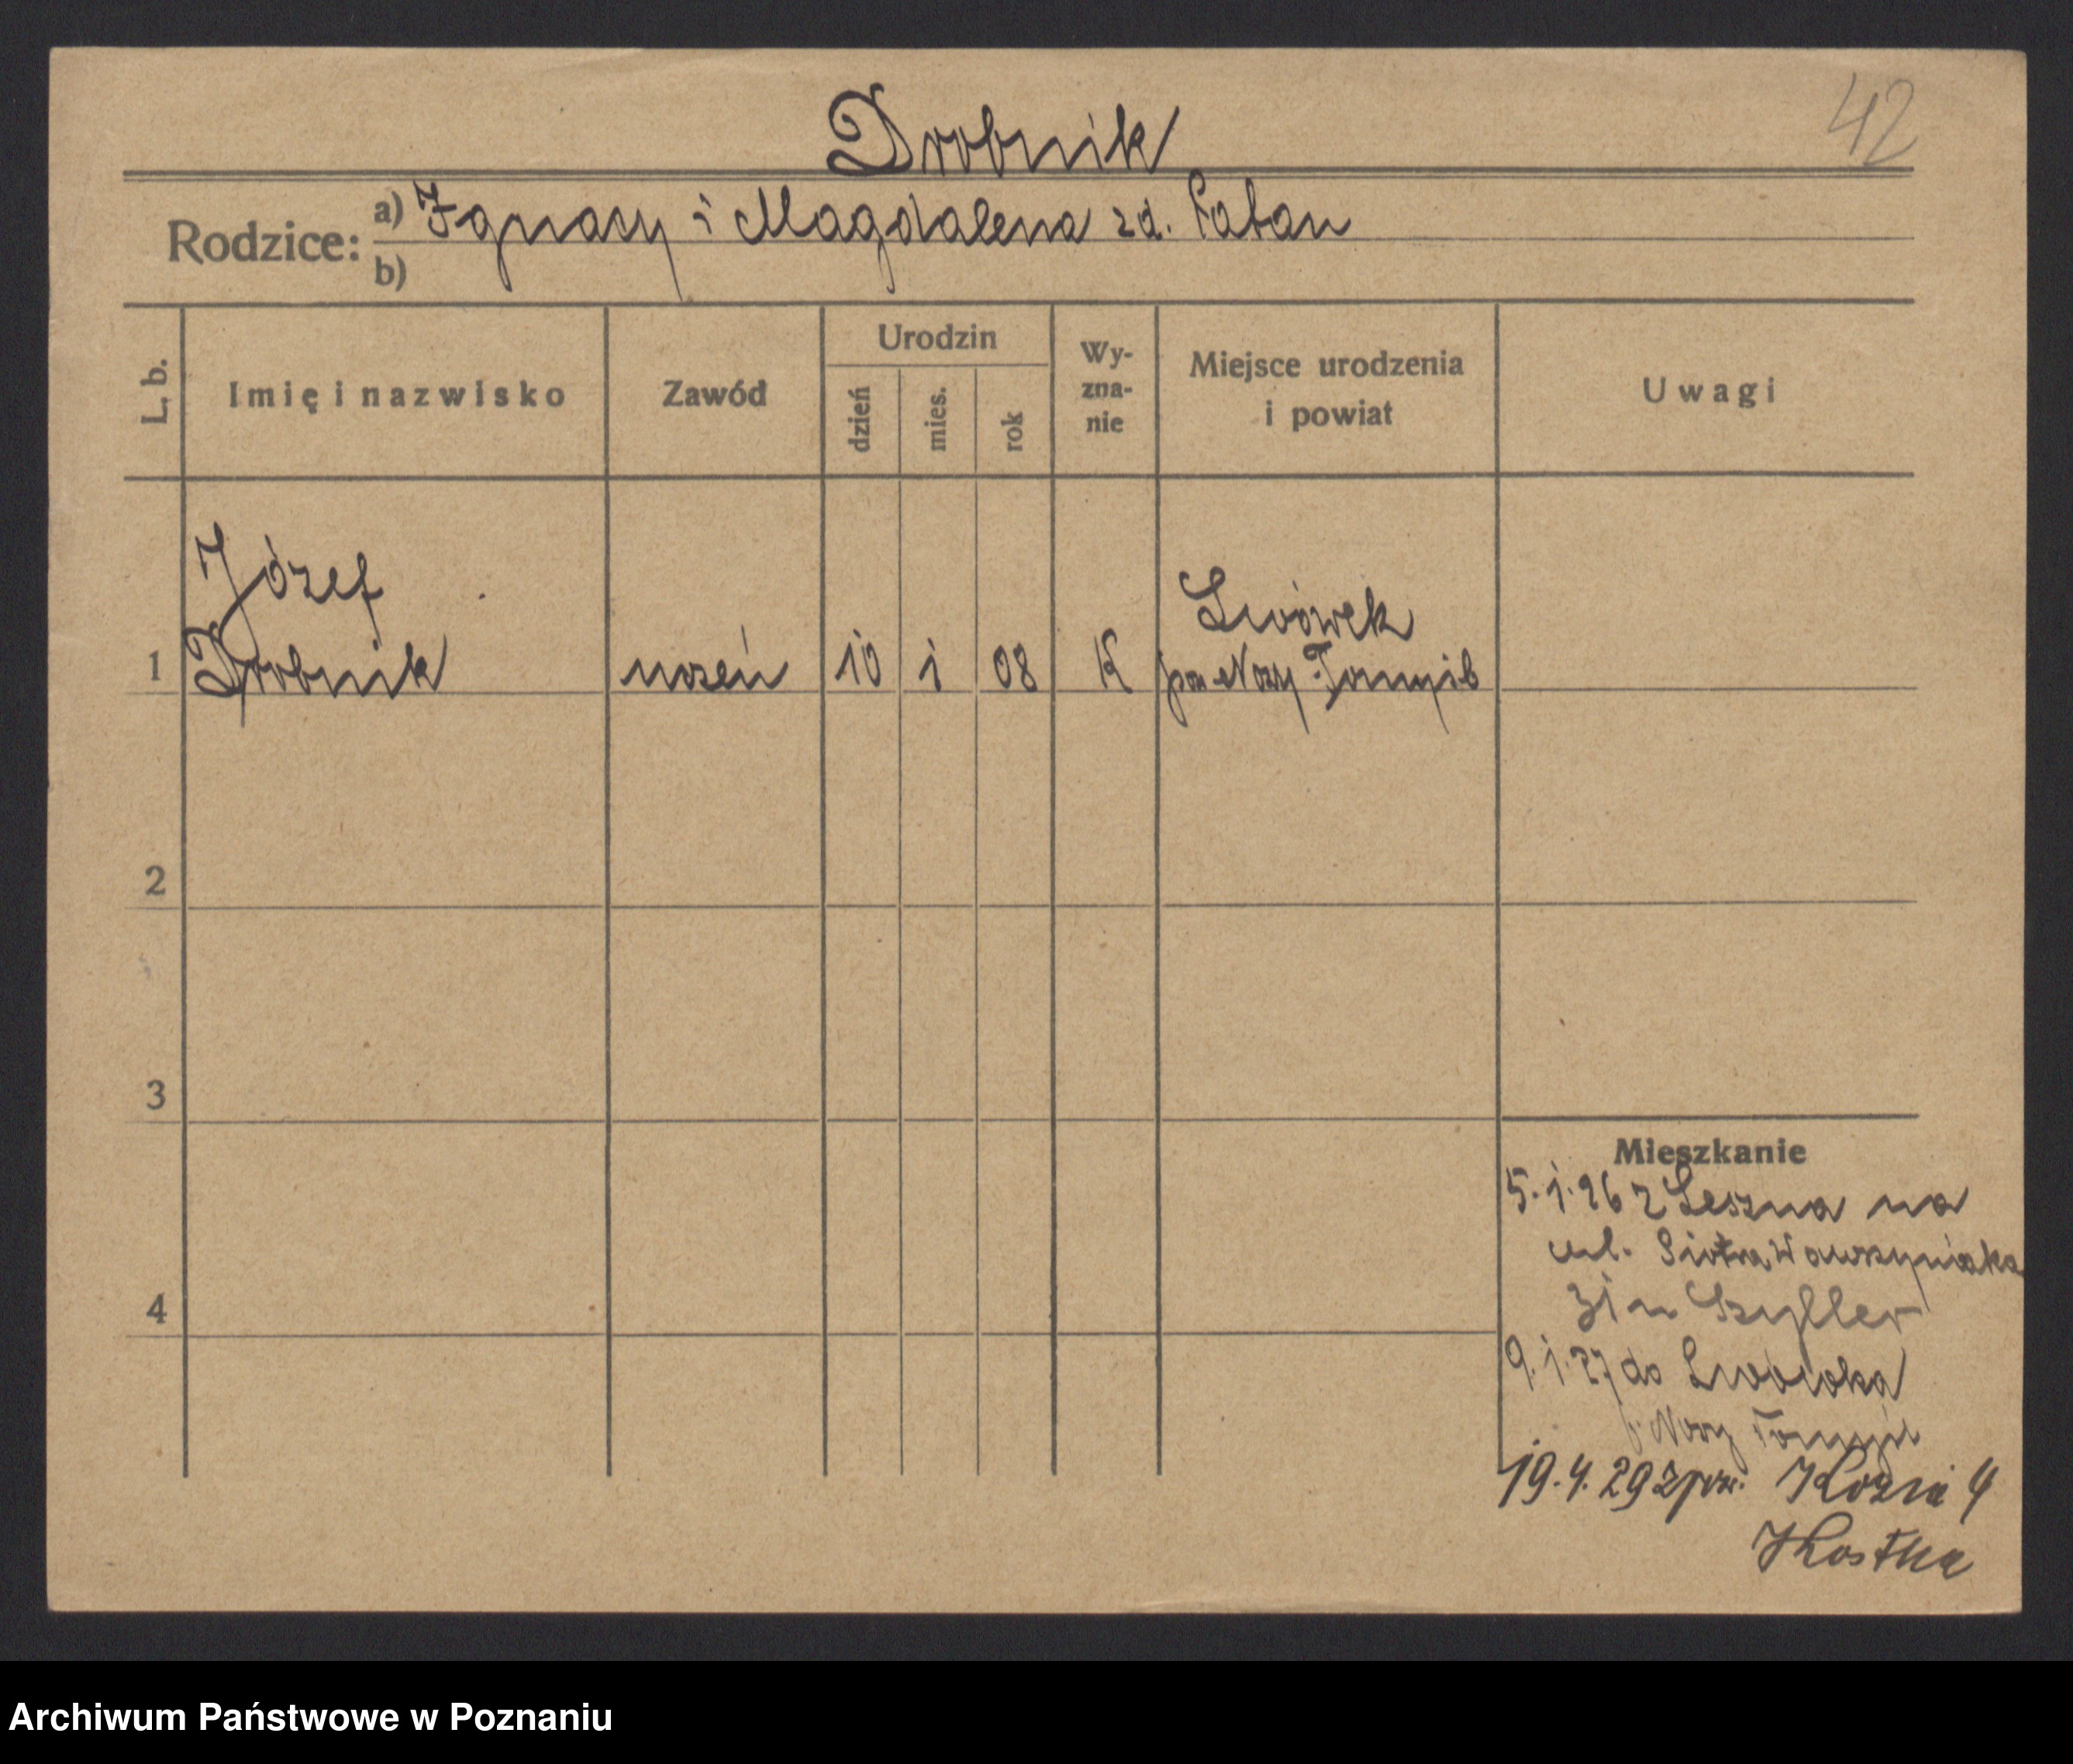 Drobnik
42
Rodzice: a) Ignacy i Magdalena zd.
b)
L. b.
Imię i nazwisko
Zawód
Urodzin
dzień
mies.
rok
Wy-
zna-
nie
Miejsce urodzenia
i powiat
Uwagi
Józef
Lwówek
1 Drobnik uczeń 10 1 08 K pow Nowy Tomyśl
2
3
4
Mieszkanie
5.1.26 z Leszna na
ul. Piotra Wawrzyniaka
31
9.1.27 do Lwówka
p. Nowy Tomyśl
19.4.29 z pow. Kozia 4
Kostka
Archiwum Państwowe w Poznaniu